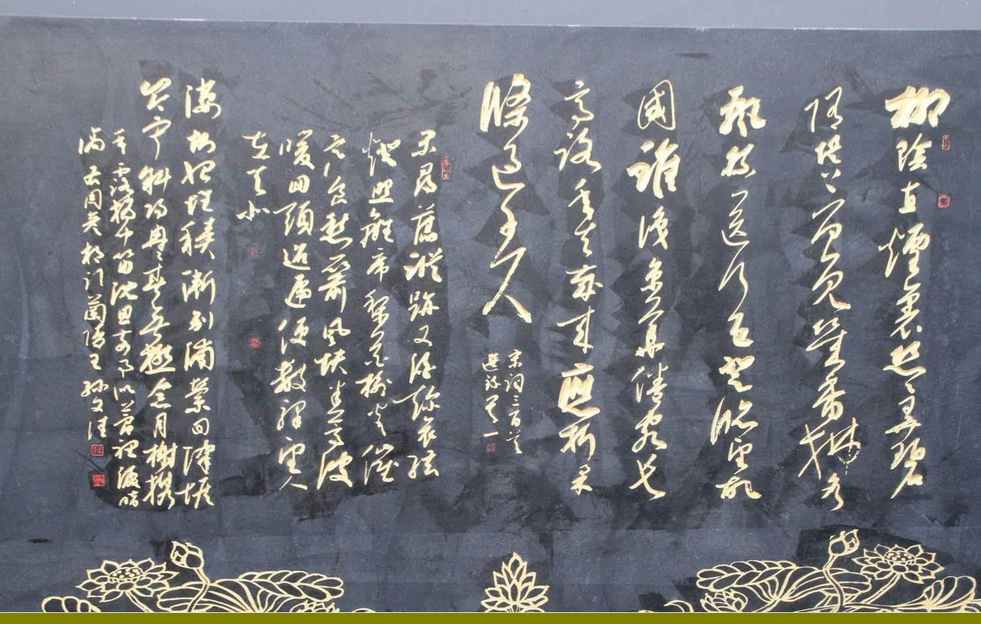 柳陰直煙裏絲絲弄碧
隋堤上曾見幾番拂水
飄綿送行色登臨望故
國誰識京華倦客長
亭路年去歲來應折柔
條過千尺
宋詞三百首
選錄其一
閑尋舊蹤跡又酒趁哀弦
燈照離席梨花榆火催
寒食愁一箭風快半篙波
暖回頭迢遞便數驛望人
在天北
淒惻恨堆積漸別浦縈回津堠
岑寂斜陽冉冉春無極念月榭攜
手露橋聞笛沈思前事似夢裡淚暗
滴 蘭陵王